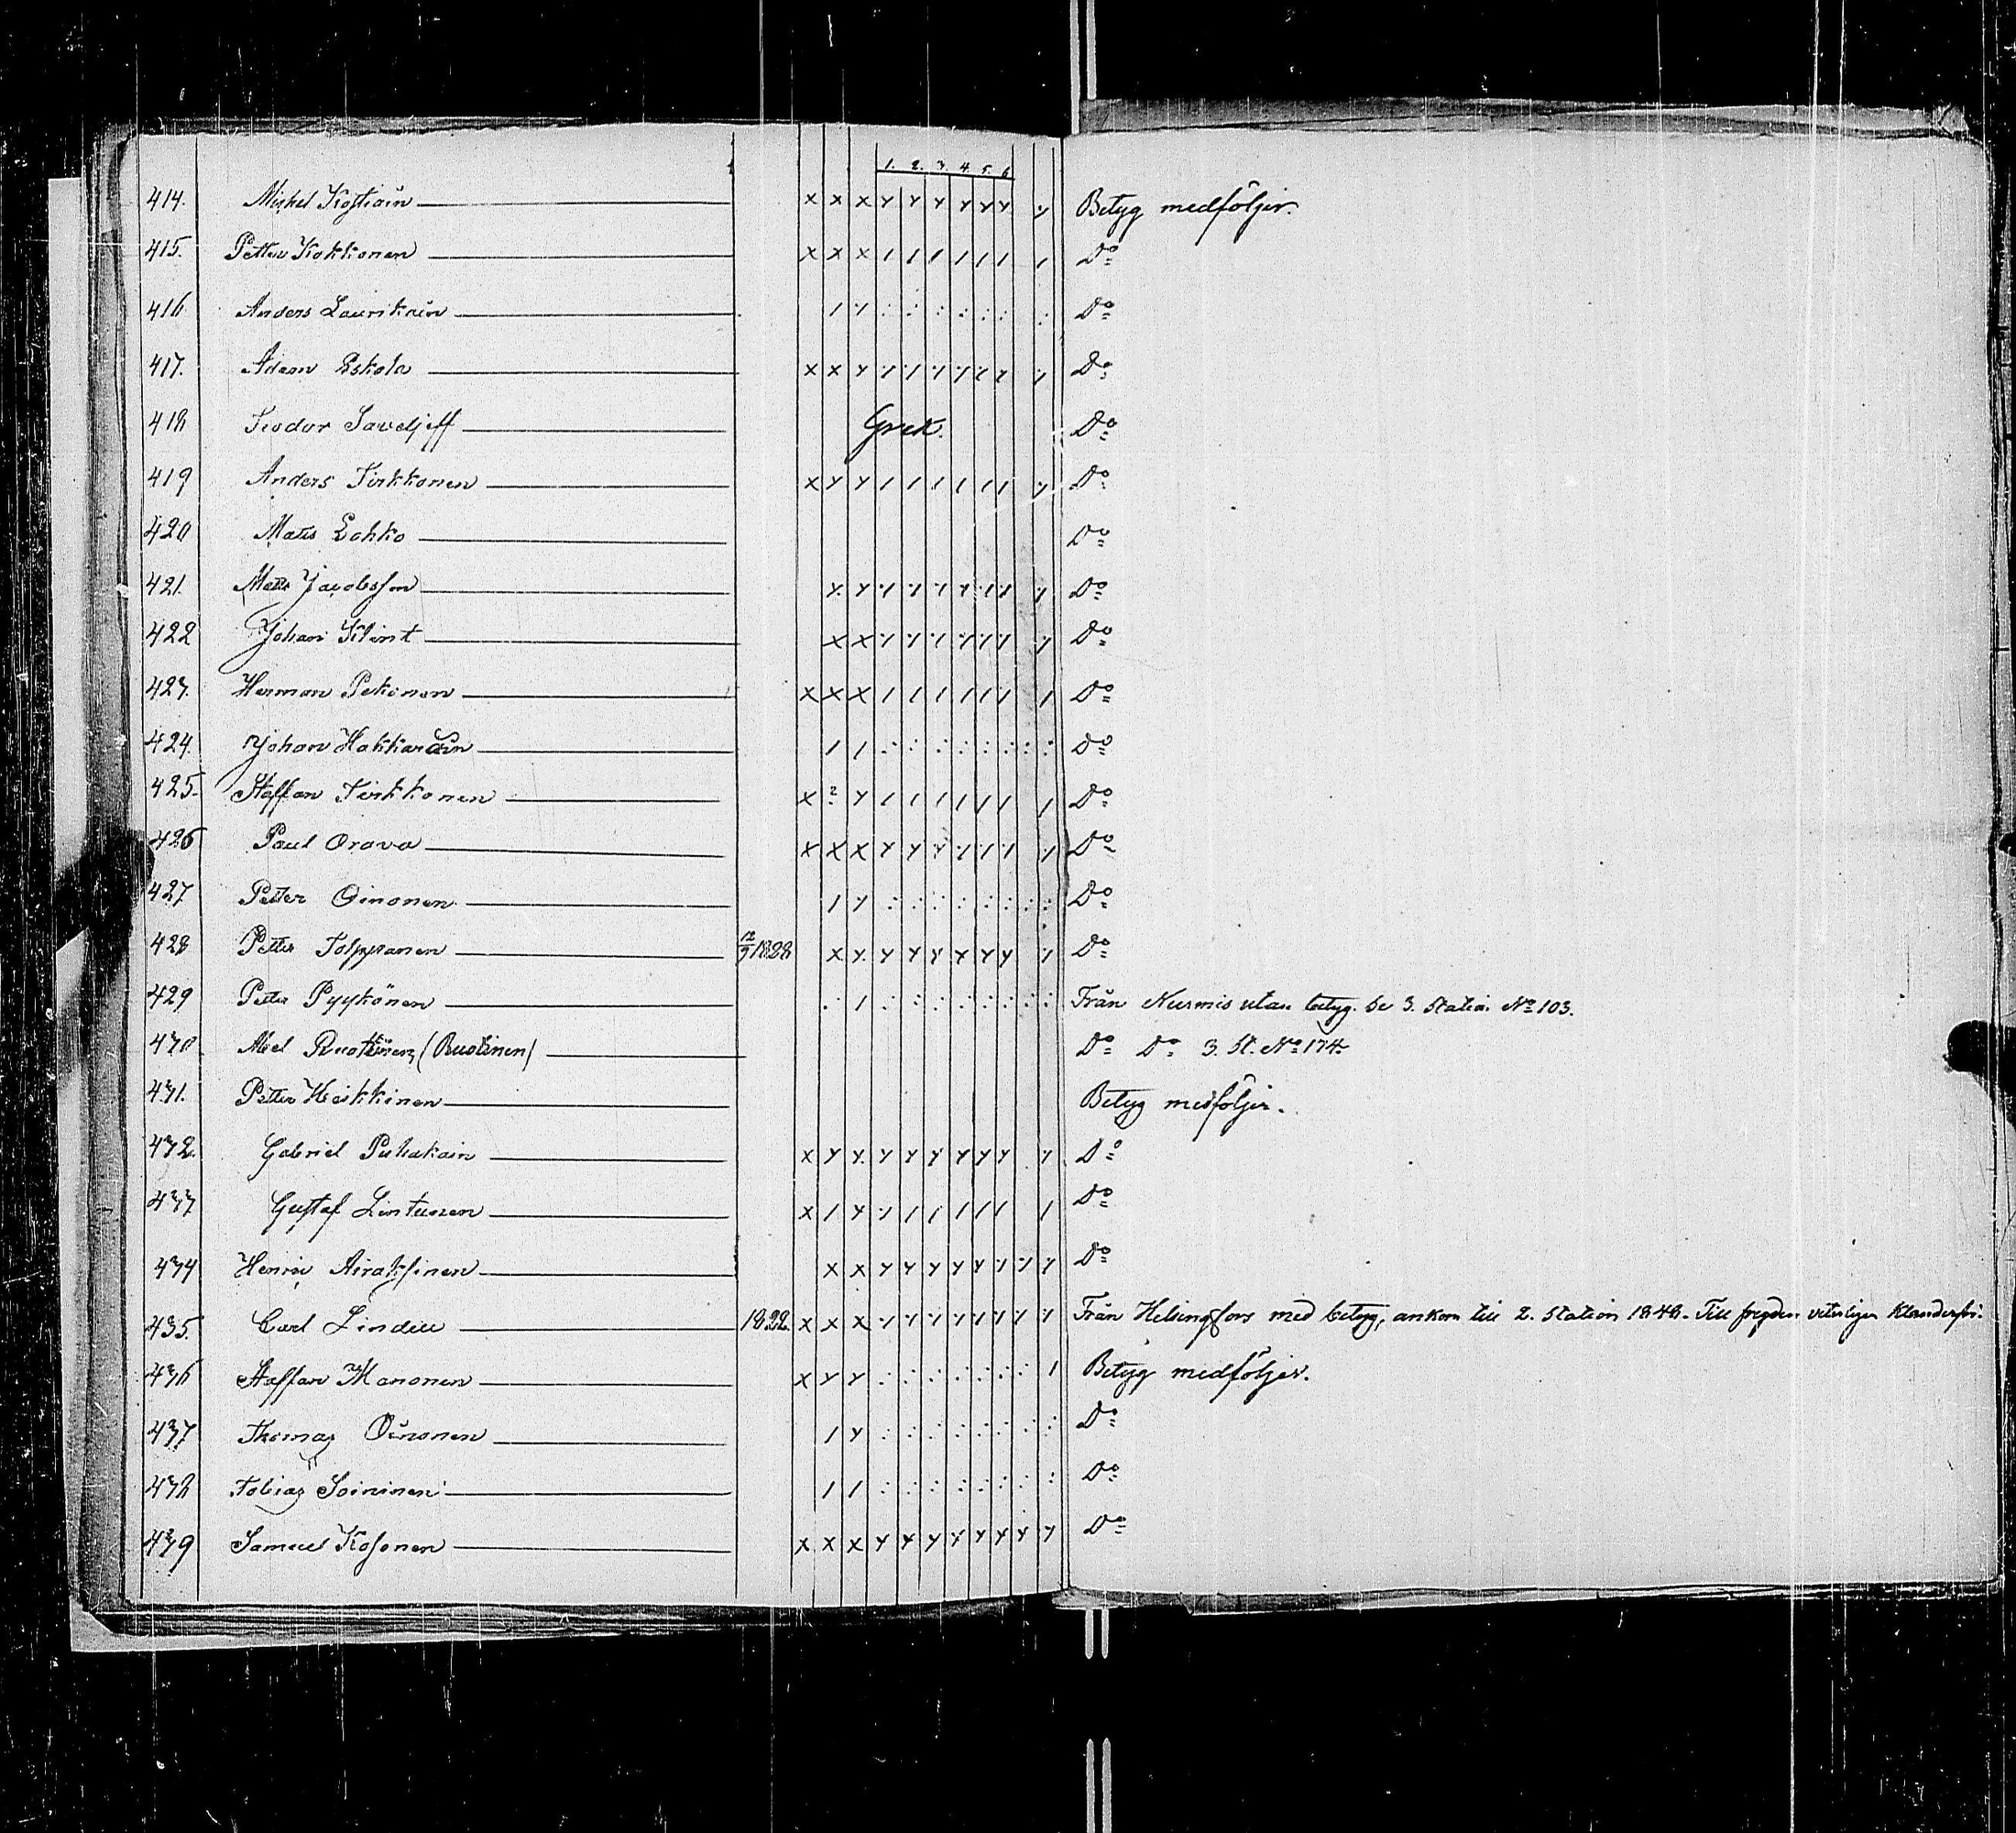 1. 2. 3. 4. 5. 6
414. Michel Kostiain x x x y y y y y y y Betyg medföljer.
415. Petter Kokkonen x x x / / / / / / / Do
416 Anders Laurikain / y : : : : : : : Do
417. Adam Eskola x x y y / y y y y y Do
418 Feodor Saveljeff Grek. Do
419 Anders Tirkkonen x y y / / / / / / y Do
420 Mats Lohko Do
421. Mats Jacobsson x y y y y y y y y Do
422 Johan Klint x x y y y y y y y Do
423. Herman Pekonen x x x / / / / / / / Do
424. Johan Hakkarain / / : : : : : : : : Do
425. Staffan Tirkkonen x 2 y / / / / / / / Do
426 Paul Orava x x x y y y y y y y Do
427 Petter Oinonen / y : : : : : : : : Do
428 Petter Tolppanen 12/9 1828 x y y y y y y y y Do
429 Petter Pyykönen : / : : : : : : : : Från Nurmis utan betyg. Se 3. Station No 103.
430 Abel Ruottinen (Ruotinen) Do Do 3. St. No 174.
431. Petter Heikkinen Betyg medföljer.
432. Gabriel Puhakain x y y y y y y y y y Do
433 Gustaf Lintunen x / y y / / / / / / Do
434 Henric Airaksinen x x y y y y y y y y Do
435. Carl Lindell 1822. x x x y y y y y y y y Från Helsingfors med betyg, ankom till 2. Station 1848. Till frejden veterligen klanderfri.
436 Staffan Manonen x y y : : : : : : : / Betyg medföljer.
437 Thomas Oinonen / y : : : : : : : : Do
438 Tobias Soininen / / : : : : : : : Do
439 Samuel Kosonen x x x y y y y y y y y Do